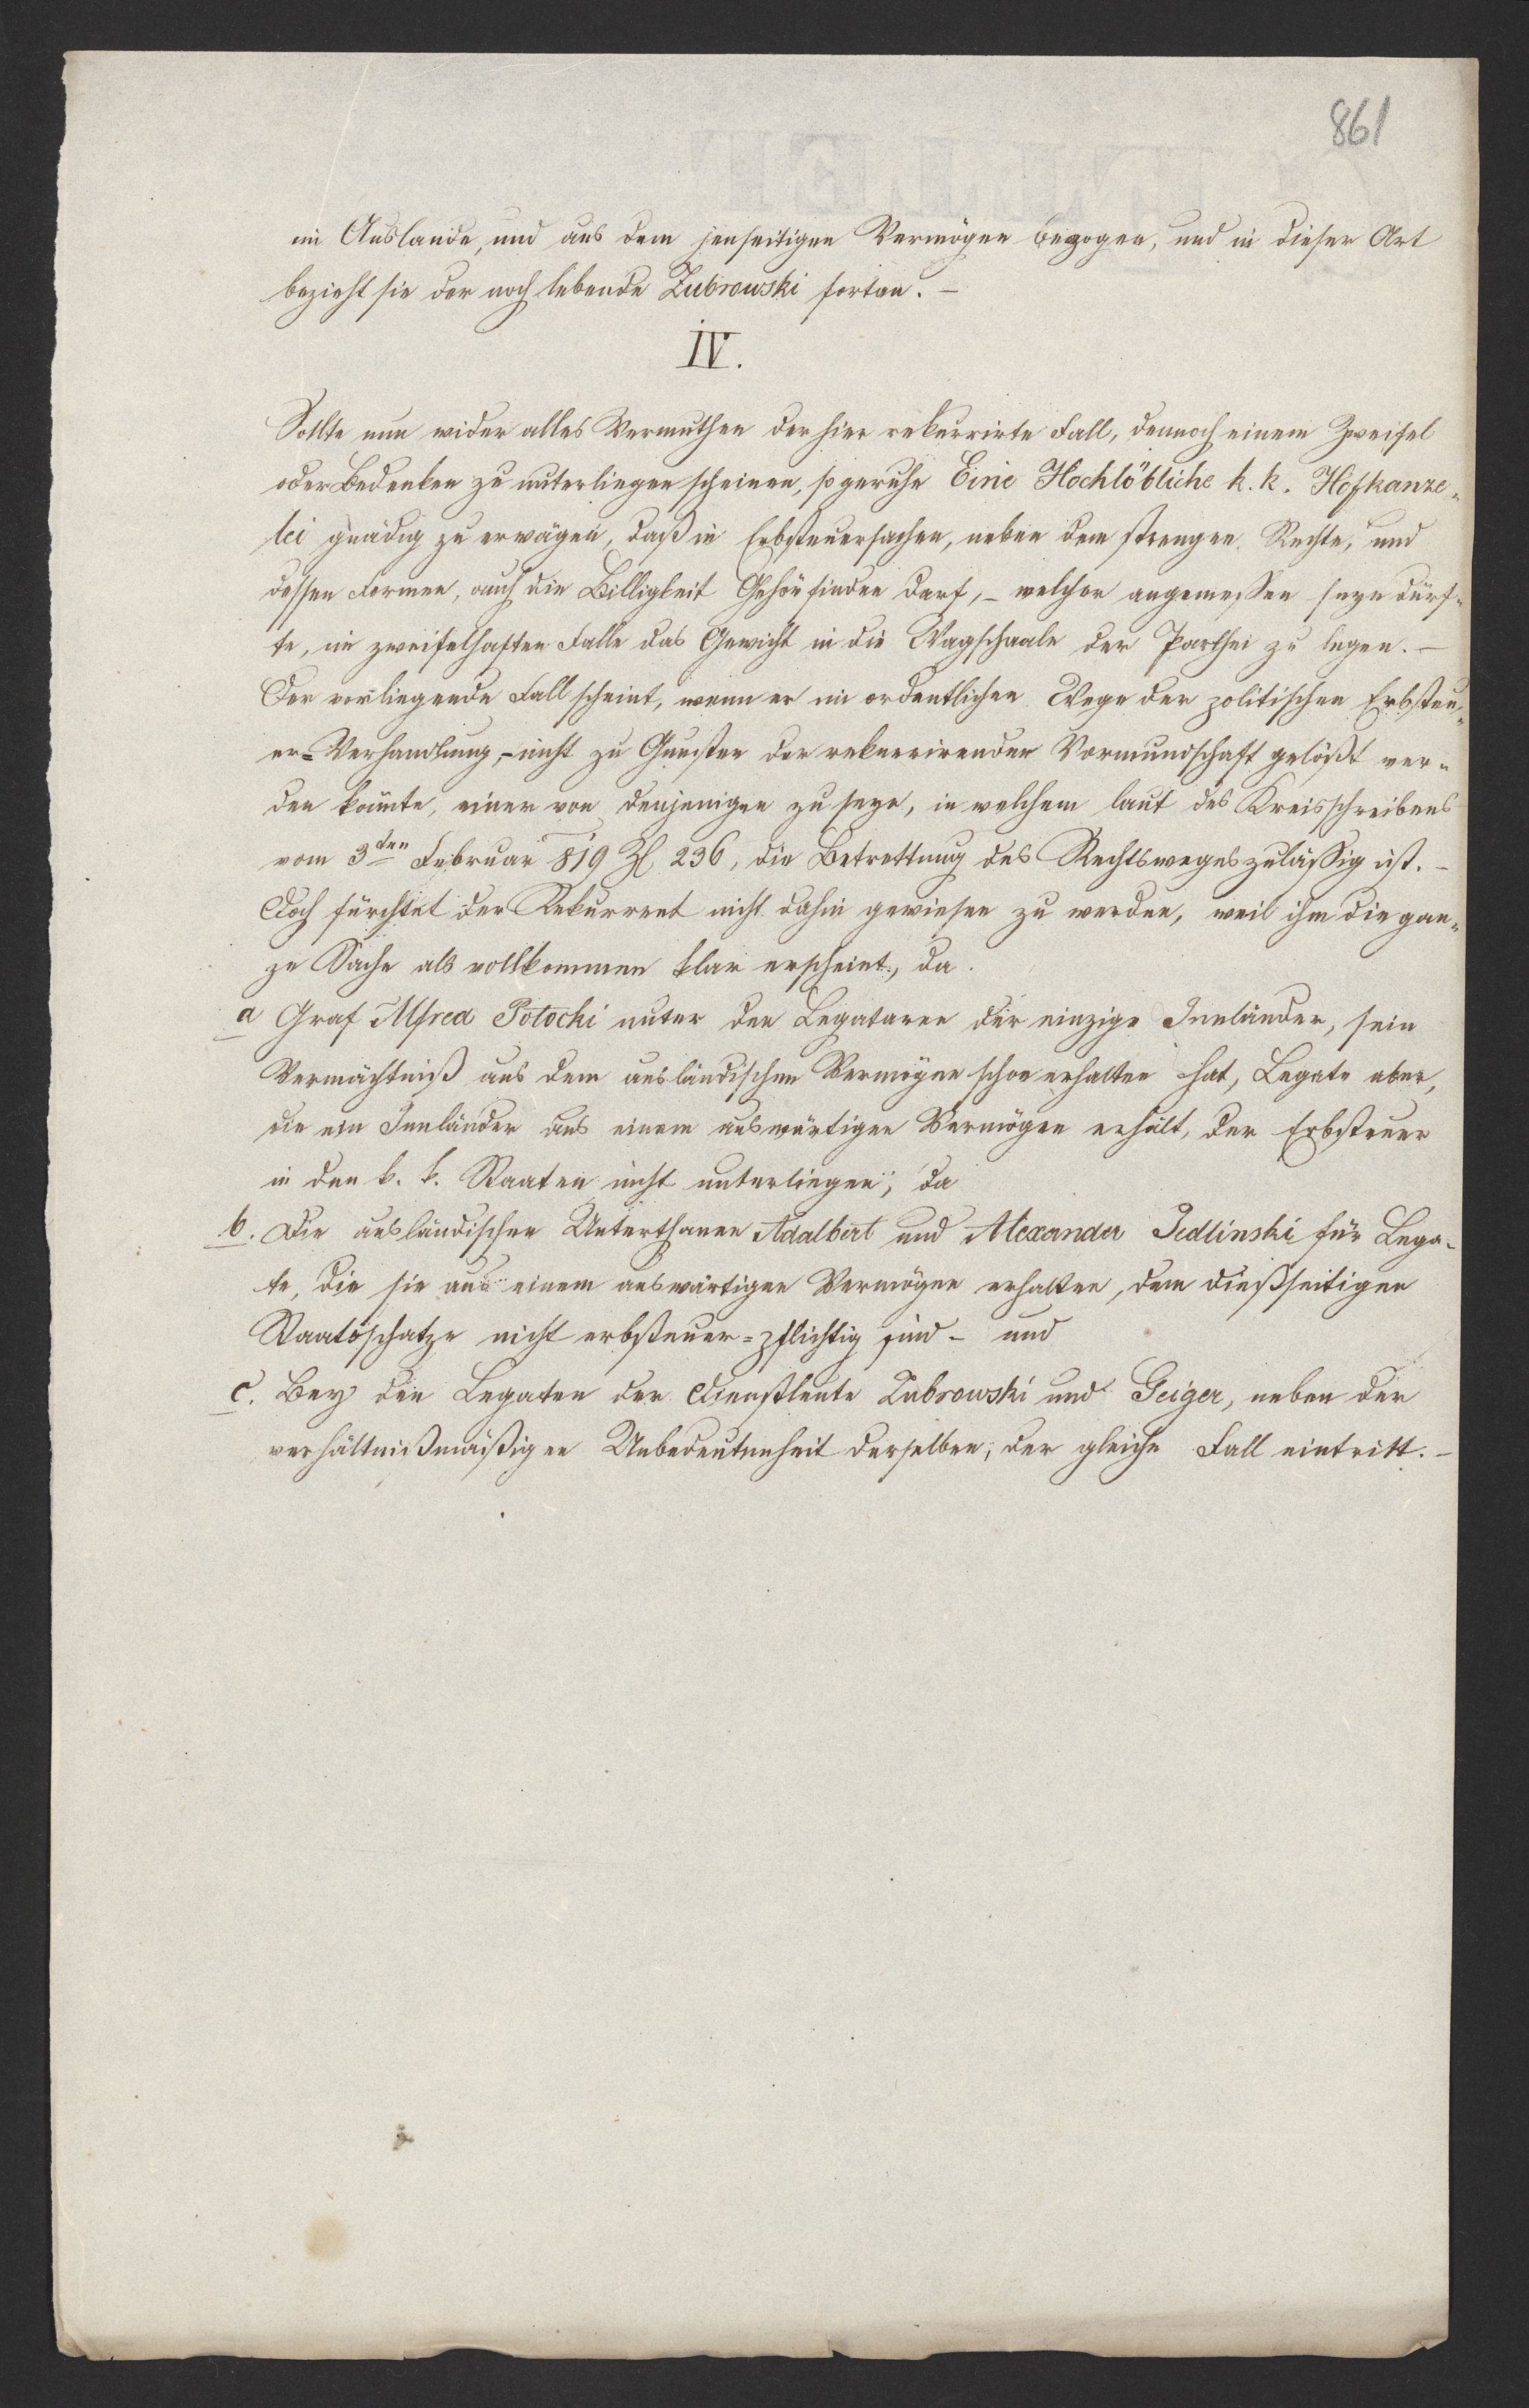 861
im Auslande, und aus dem jenseitigen Vermögen bezogen, und in dieser Art
bezieht sie der noch lebende Zubrowski fortan. –
IV.
Sollte nun wider alles Vermuthen der hier rekurrirte Fall, dennoch einem Zweifel
oder Bedenken zu unterliegen scheinen, so geruhe Eine Hochlöbliche k. k. Hofkanze„
lei gnädig zu erwägen, daß in Erbsteuersachen, neben dem strengen Rechte, und
dessen Formen, auch die Billigkeit Gehör finden darf, – welcher angemessen seyn dürf„
te, im zweifelhaften Falle das Gewicht in die Wagschaale der Parthei zu legen. –
Der vorliegende Fall scheint, wenn er im ordentlichen Wege der politischen Erbsteu„
er=Verhandlung, – nicht zu Gunsten der rekurrirenden Vormundschaft gelößt wer„
den könnte, einer von denjenigen zu seyn, in welchem laut des Kreisschreibens
vom 3ten Februar 819 Zl 236, die Betrettung des Rechtsweges zuläßig ist. –
Doch fürchtet der Rekurrent nicht dahin gewiesen zu werden, weil ihm die gan„
ze Sache als vollkommen klar erscheint, da
a Graf Alfred Potocki unter den Legataren der einzige Innländer, sein
Vermächtniß aus dem ausländischen Vermögen schon erhalten hat, Legate aber,
die ein Innländer aus einem auswärtigen Vermögen erhält, der Erbsteuer
in den k. k. Staaten nicht unterliegen, da
b. Die ausländischen Unterthanen Adalbert und Alexander Jedlinski für Lega„
te, die sie aus einem auswärtigen Vermögen erhalten, dem dießseitigen
Staatsschatze nicht erbsteuer=pflichtig sind – und
c. Bey den Legaten der Dienstleute Zubrowski und Geiger, neben der
verhältnißmäßigen Unbedeutenheit derselben, der gleiche Fall eintritt. –